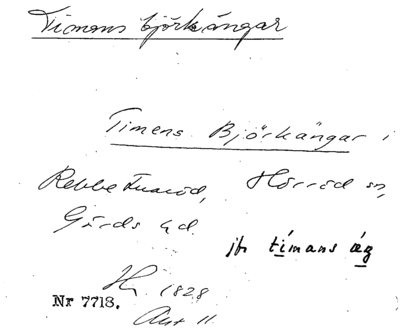 Timans björkängar
Timens Björkängar i
Rebbetuaröd, Hörröd sn,
Gärds hd.
jfr tímans äg
Hy. 1828
Nr 7718.
Akt 11.